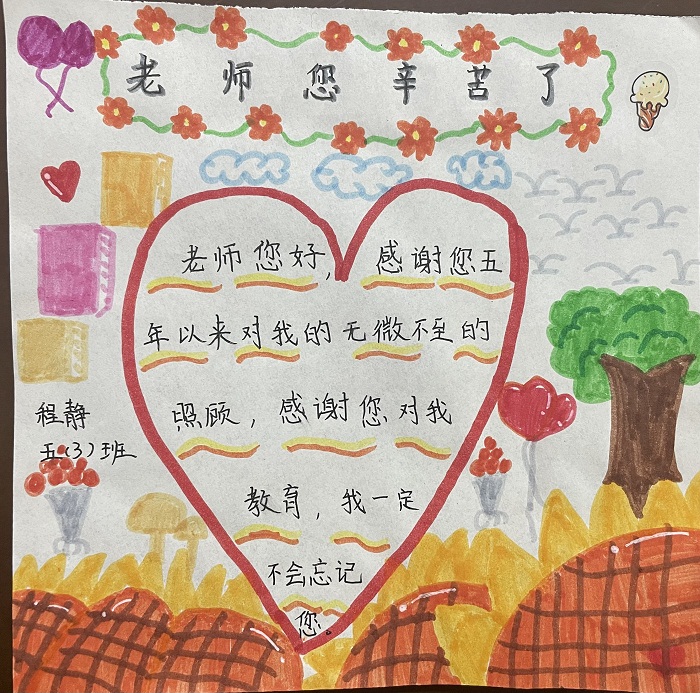 老师您辛苦了
老师您好，感谢您五
年以来对我的无微不至的
照顾，感谢您对我
教育，我一定
不会忘记
您。
程静
五(3)班